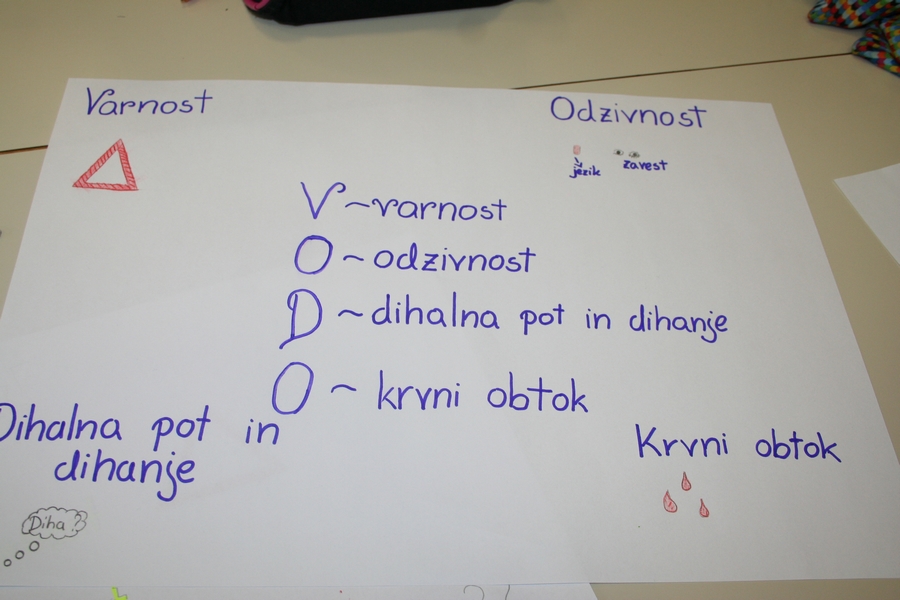 Varnost
Odzivnost
jezik
zavest
V~varnost
O~odzivnost
D~dihalna pot in dihanje
O~krvni obtok
Dihalna pot in
dihanje
Diha?
Krvni obtok